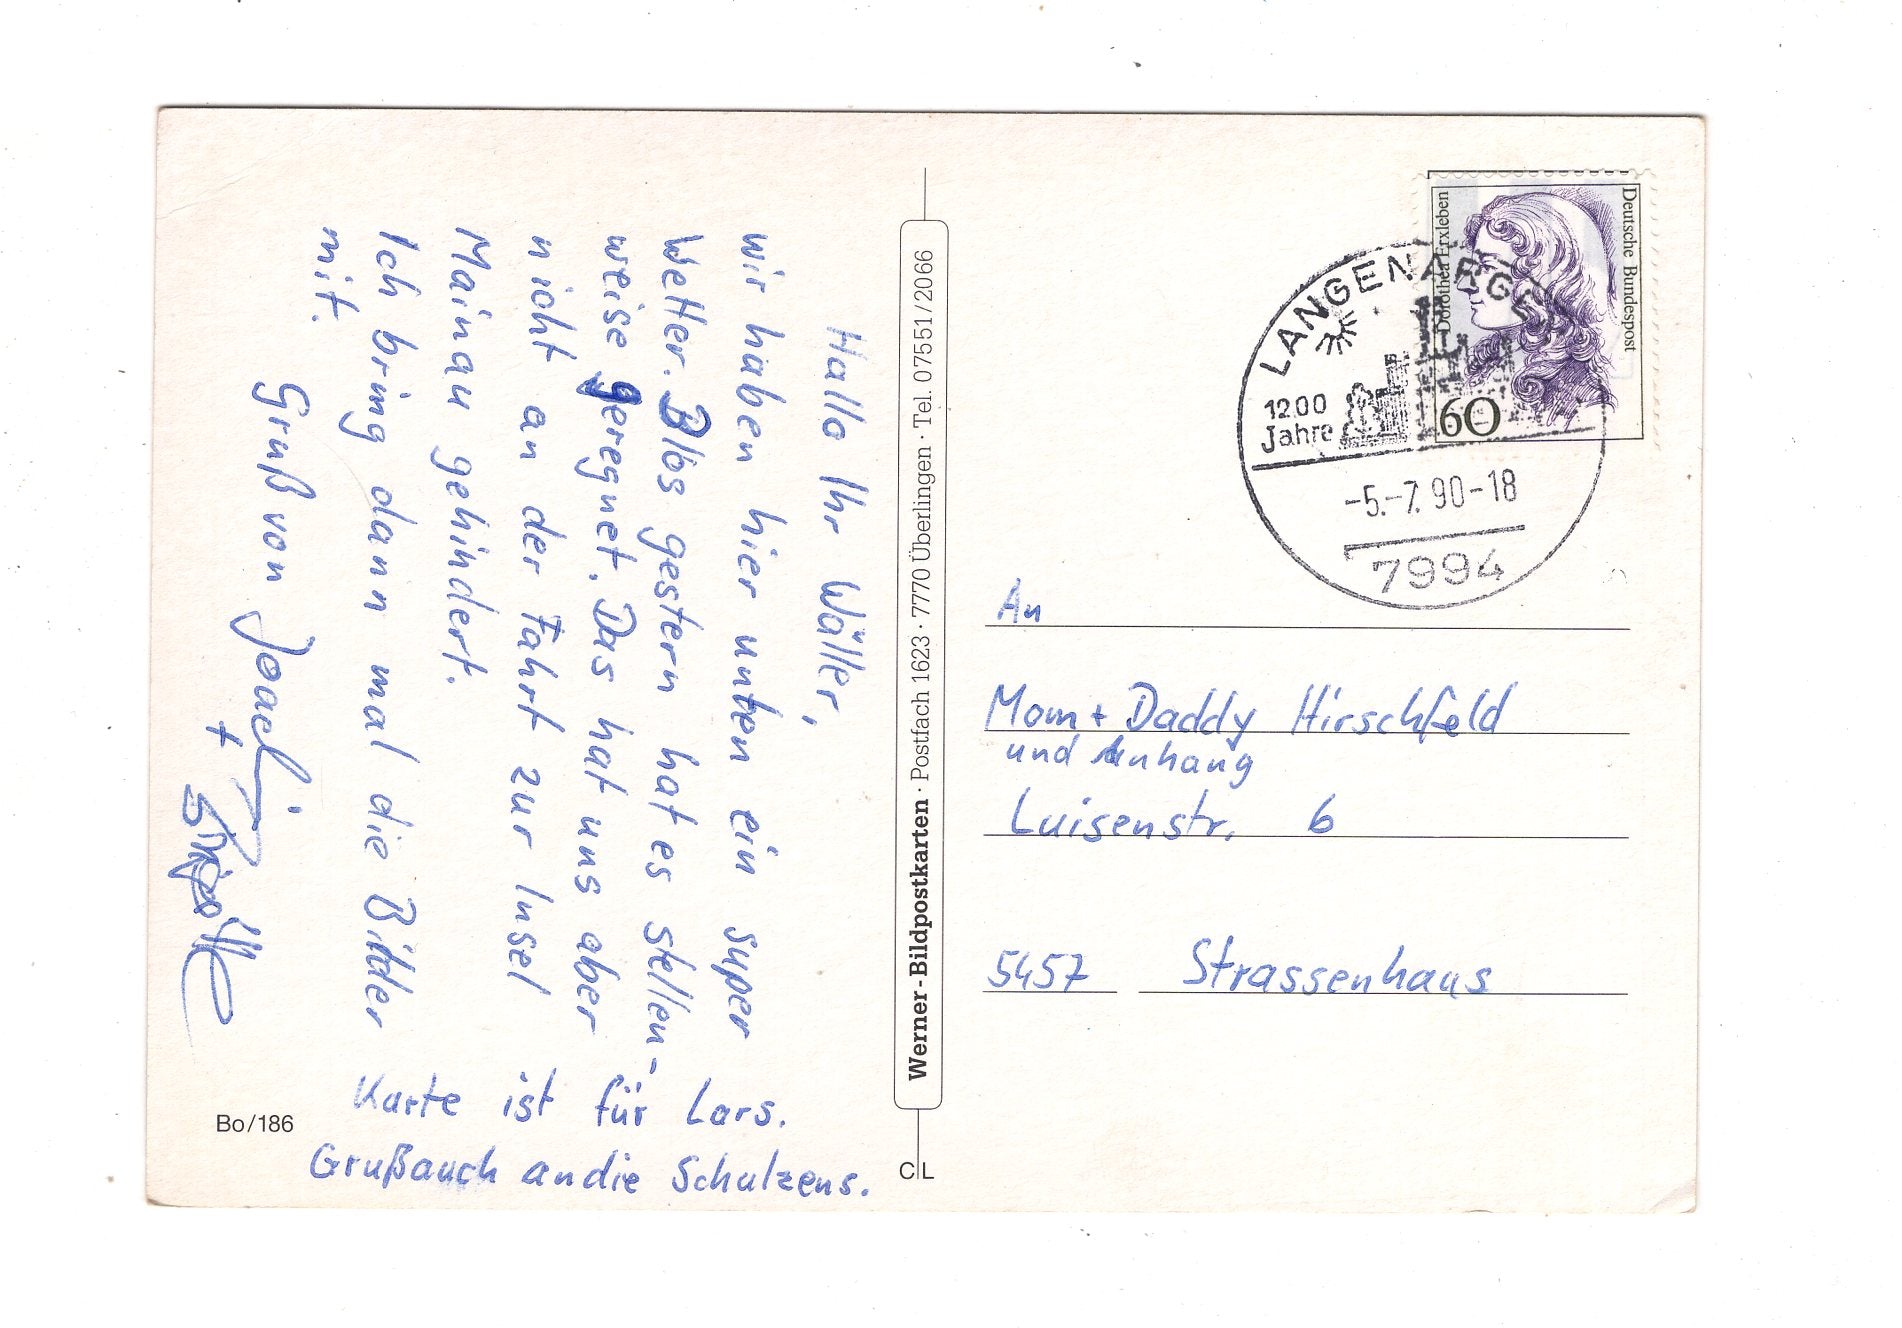 Hallo Ihr Wäller,
wir haben hier unten ein super
Wetter. Blos gestern hat es stellen-
weise geregnet. Das hat uns aber
nicht an der Fahrt zur Insel
Mainau gehindert.
Ich bring dann mal die Bilder
mit.
Gruß von Joachim
+
Karte ist für Lars.
Gruß auch an die Schulzens.
Bo/186
Werner-Bildpostkarten · Postfach 1623 · 7770 Überlingen · Tel. 07551/2066
C L
Deutsche Bundespost
Dorothea Erxleben
60
LANGENARGEN
1200
Jahre
-5.-7.90-18
7994
An
Mom + Daddy Hirschfeld
und Anhang
Luisenstr. 6
5457 Strassenhaus